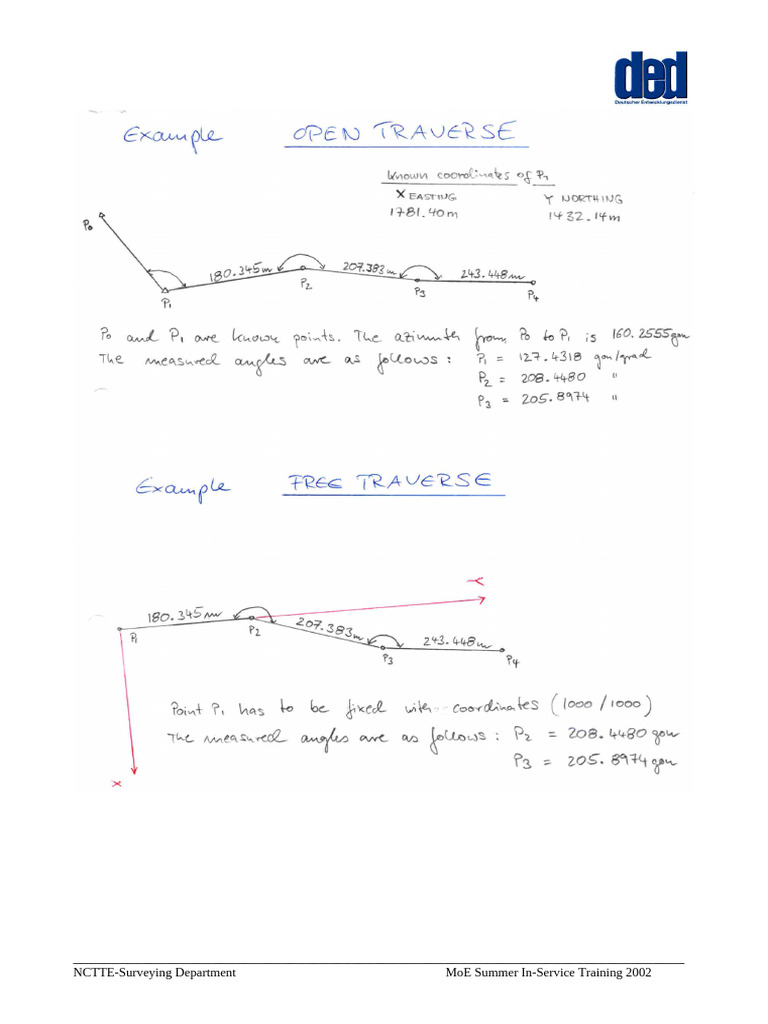 ded
Deutscher Entwicklungsdienst
Example OPEN TRAVERSE
known coordinates of P1
X EASTING Y NORTHING
1781.40m 1432.14m
P0
180.345m 207.383m 243.448m
P1 P2 P3 P4
P0 and P1 are known points. The azimuth from P0 to P1 is 160.2555gon
The measured angles are as follows: P1 = 127.4318 gon/grad
P2 = 208.4480 "
P3 = 205.8974 "
Example FREE TRAVERSE
Y
180.345m 207.383m 243.448m
P1 P2 P3 P4
Point P1 has to be fixed with coordinates (1000/1000)
The measured angles are as follows: P2 = 208.4480 gon
P3 = 205.8974 gon
X
NCTTE-Surveying Department MoE Summer In-Service Training 2002